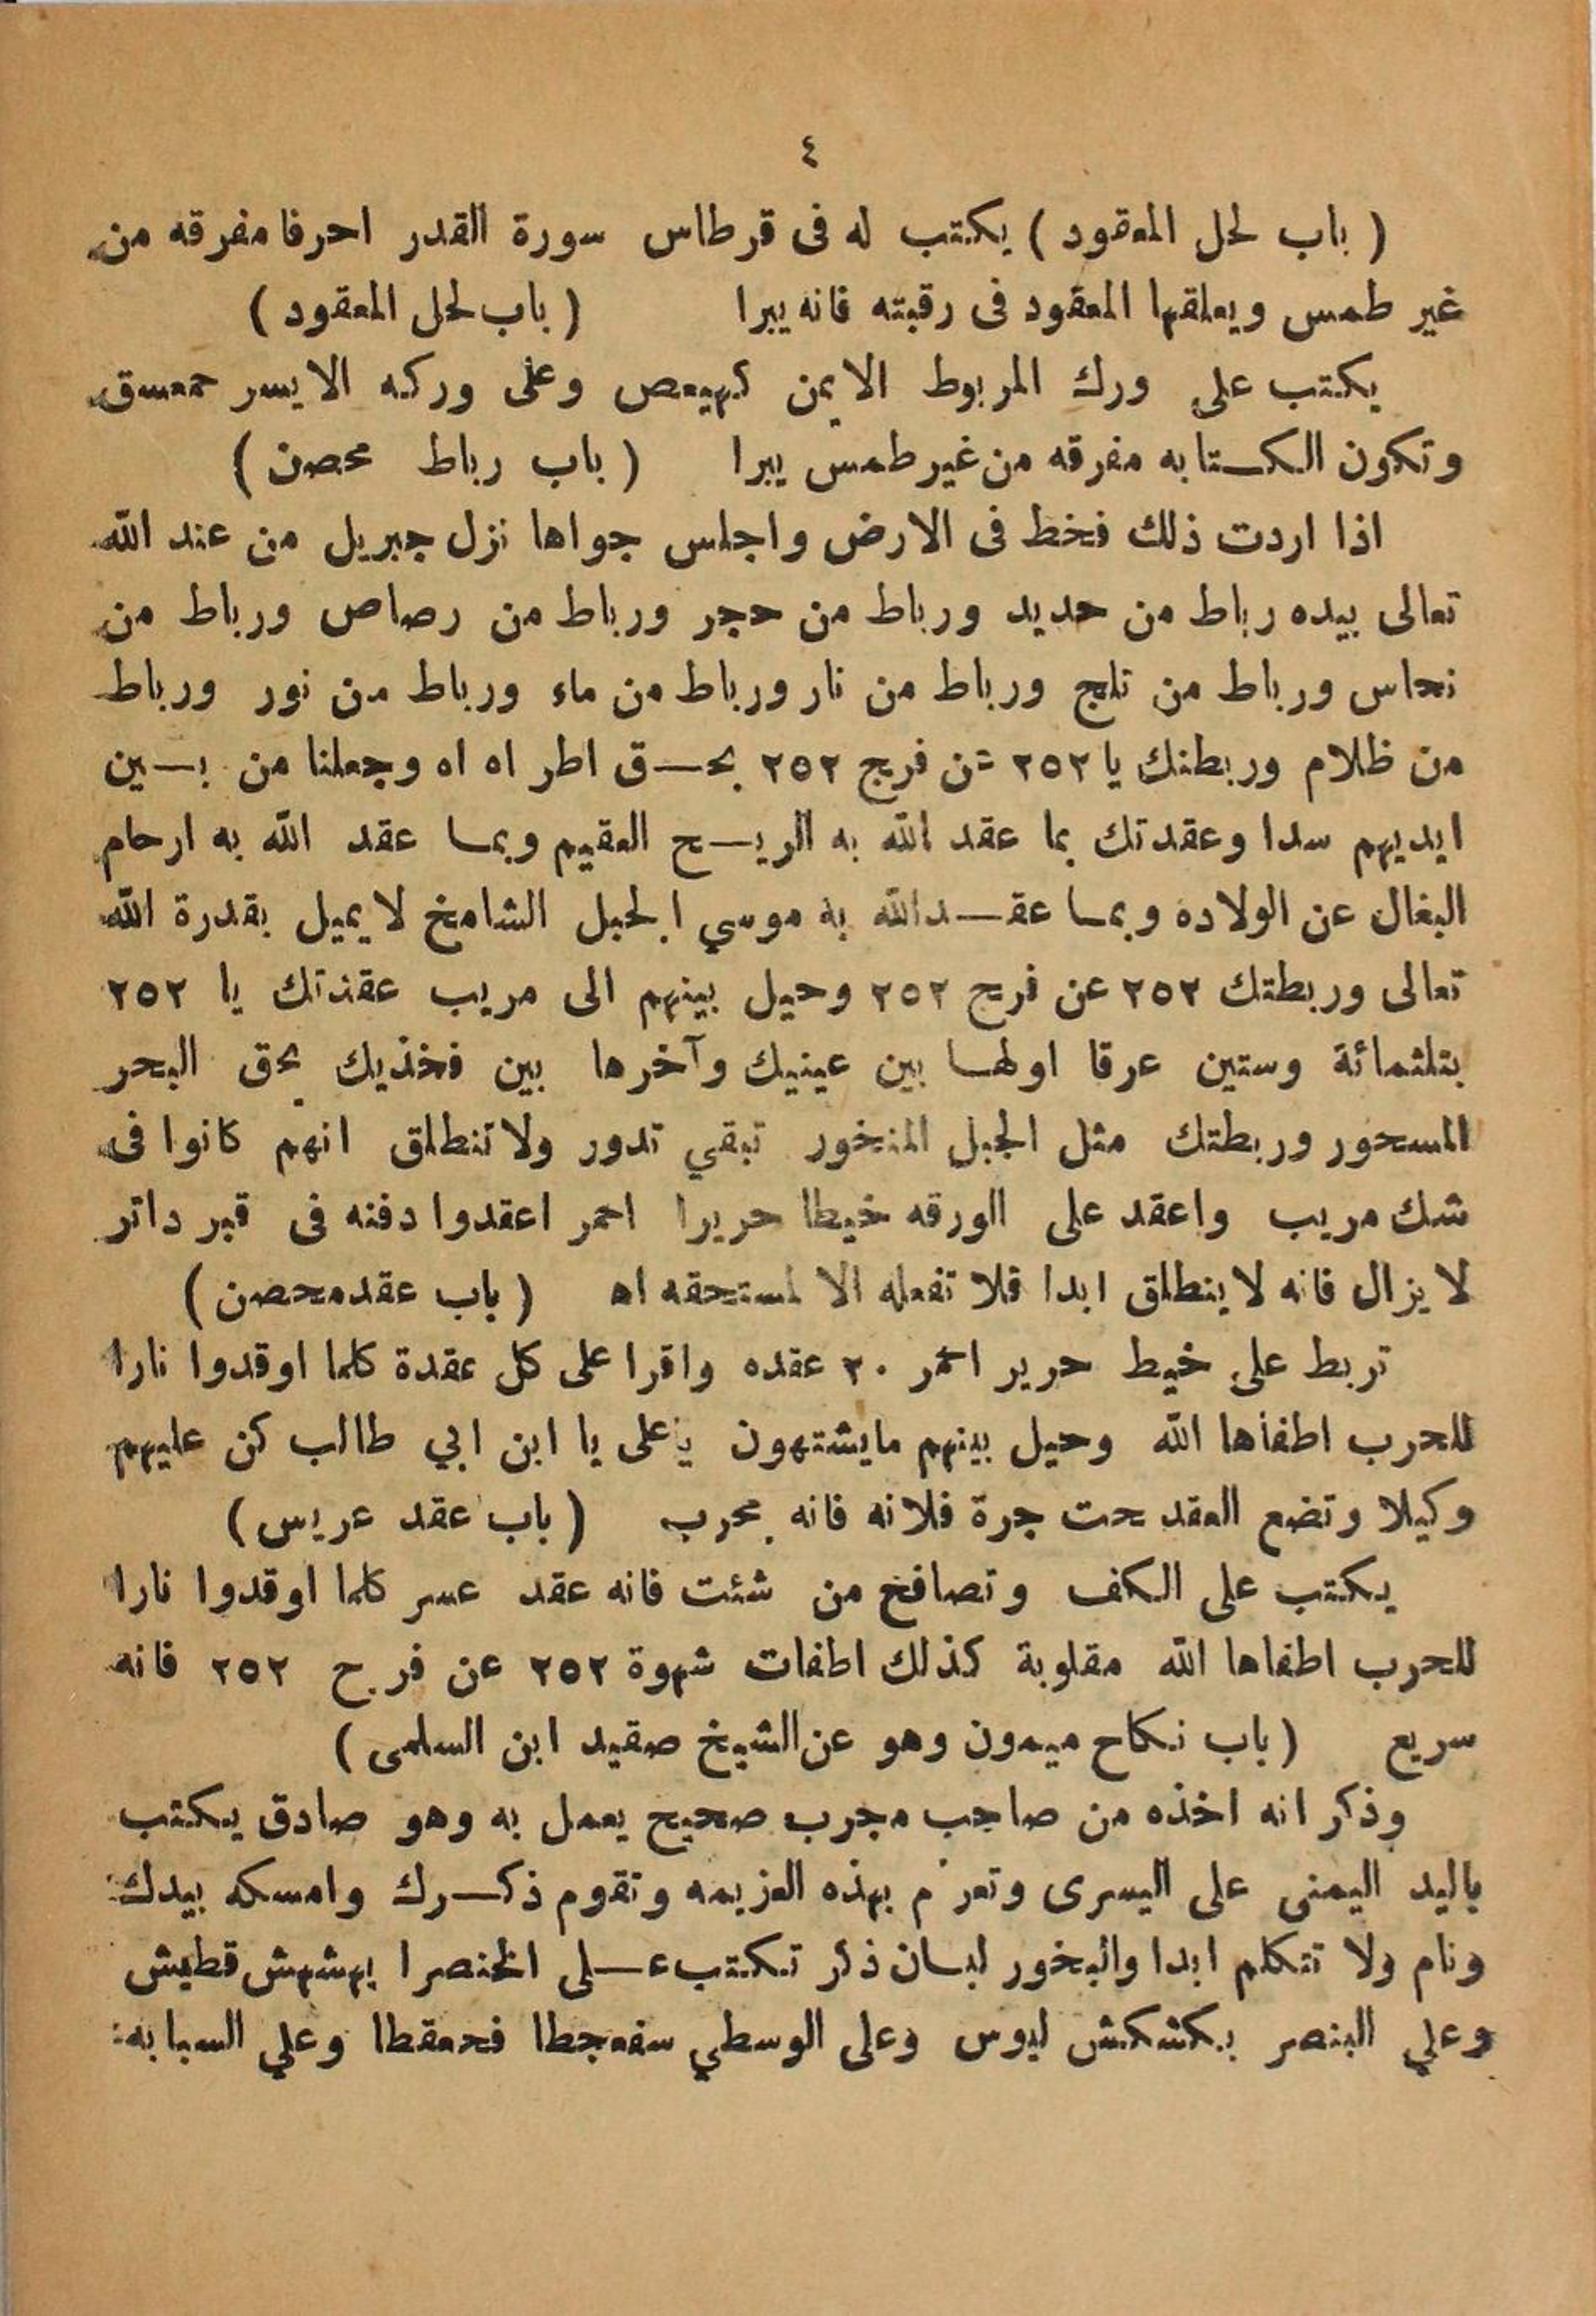 ٤
( باب لحل المعقود ) يكتب له فى قرطاس سورة القدر احرفا مفرقه من
غير طمس ويعلقها المعقود فى رقبته فانه يبرا ( باب لحل المعقود )
يكتب على ورك المربوط الايمن كهيعص وعلى وركه الايسر حمعسق
وتكون الكتابه مفرقه من غير طمس يبرا ( باب رباط محصن )
اذا اردت ذلك فخط فى الارض واجلس جواها نزل جبريل من عند الله
تعالى بيده رباط من حديد ورباط من حجر ورباط من رصاص ورباط من
نحاس ورباط من ثلج ورباط من نار ورباط من ماء ورباط من نور ورباط
من ظلام وربطنك يا ٢٥٢ عن فرج ٢٥٢ بحق اطر اه اه وجعلنا من بين
ايديهم سدا وعقدتك بما عقد الله به الريح العقيم وبما عقد الله به ارحام
البغال عن الولاده وبما عقد الله به موسي الجبل الشامخ لا يميل بقدرة الله
تعالى وربطتك ٢٥٢ عن فرج ٢٥٢ وحيل بينهم الى مريب عقدتك يا ٢٥٢
بثلثمائة وستين عرقا اولها بين عينيك وآخرها بين فخذيك بحق البحر
المسحور وربطتك مثل الجبل المنخور تبقي تدور ولا تنطلق انهم كانوا فى
شك مريب واعقد على الورقه خيطا حريرا احمر اعقدوا دفنه فى قبر داتر
لا يزال فانه لا ينطلق ابدا فلا تفعله الا لمستحقه اه ( باب عقد محصن )
تربط على خيط حرير احمر ٢٠ عقده واقرا على كل عقدة كلما اوقدوا نارا
للحرب اطفأها الله وحيل بينهم ما يشتهون يا على يا ابن ابي طالب كن عليهم
وكيلا وتضع العقد تحت جرة فلانه فانه مجرب ( باب عقد عريس )
يكتب على الكف وتصافح من شئت فانه عقد عسر كلما اوقدوا نارا
للحرب اطفاها الله مقلوبة كذلك اطفات شهوة ٢٥٢ عن فرج ٢٥٢ فانه
سريع ( باب نكاح ميمون وهو عن الشيخ صقيد ابن السلمى )
وذكر انه اخذه من صاحب مجرب صحيح يعمل به وهو صادق يكتب
باليد اليمنى على اليسرى وتعزم بهذه العزيمه وتقوم ذكرك وامسكه بيدك
ونام ولا تتكلم ابدا والبخور لبان ذكر تكتب على الخنصر ا بهشهش قطيش
وعلي البنصر بكشكش ليوس وعلى الوسطي سفعجطا فحمقطا وعلي السبابه